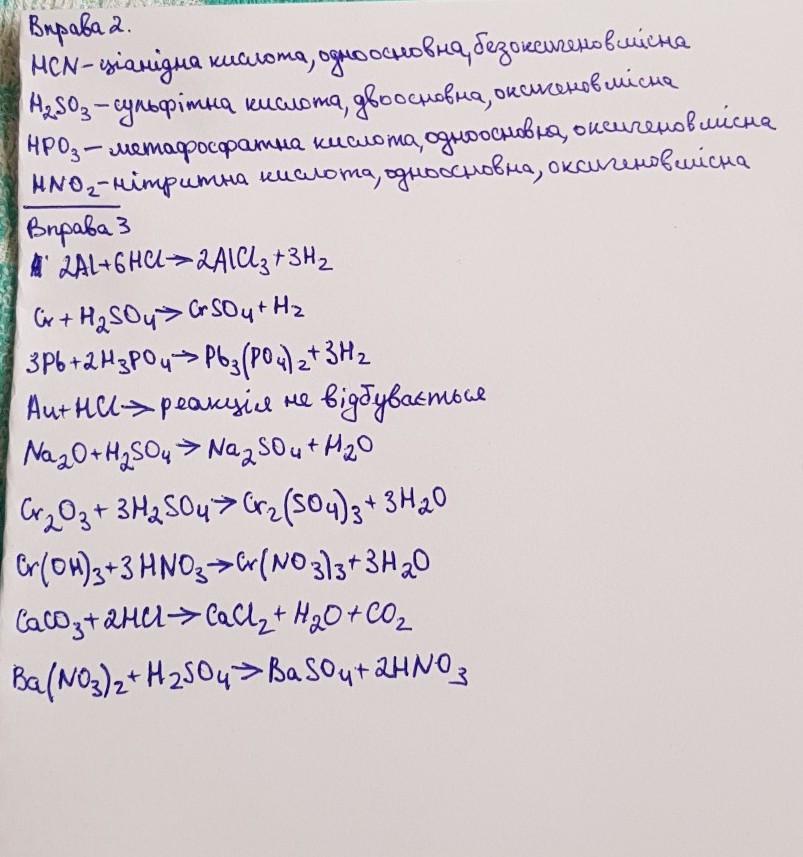 Вправа 2.
HCN – ціанідна кислота, одноосновна, безоксигеновмісна
H₂SO₃ – сульфітна кислота, двоосновна, оксигеновмісна
HPO₃ – метафосфатна кислота, одноосновна, оксигеновмісна
HNO₂ – нітритна кислота, одноосновна, оксигеновмісна
Вправа 3
2Al+6HCl→2AlCl₃+3H₂
Cr+H₂SO₄→CrSO₄+H₂
3Pb+2H₃PO₄→Pb₃(PO₄)₂+3H₂
Au+HCl→реакція не відбувається
Na₂O+H₂SO₄→Na₂SO₄+H₂O
Cr₂O₃+3H₂SO₄→Cr₂(SO₄)₃+3H₂O
Cr(OH)₃+3HNO₃→Cr(NO₃)₃+3H₂O
CaCO₃+2HCl→CaCl₂+H₂O+CO₂
Ba(NO₃)₂+H₂SO₄→BaSO₄+2HNO₃